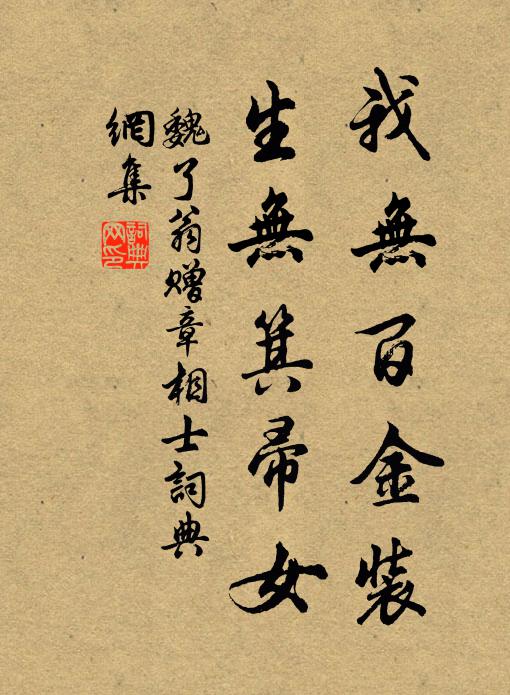 我無百金裝
生無箕帚女
魏了翁贈章相士詞典
網集
詞典
网印